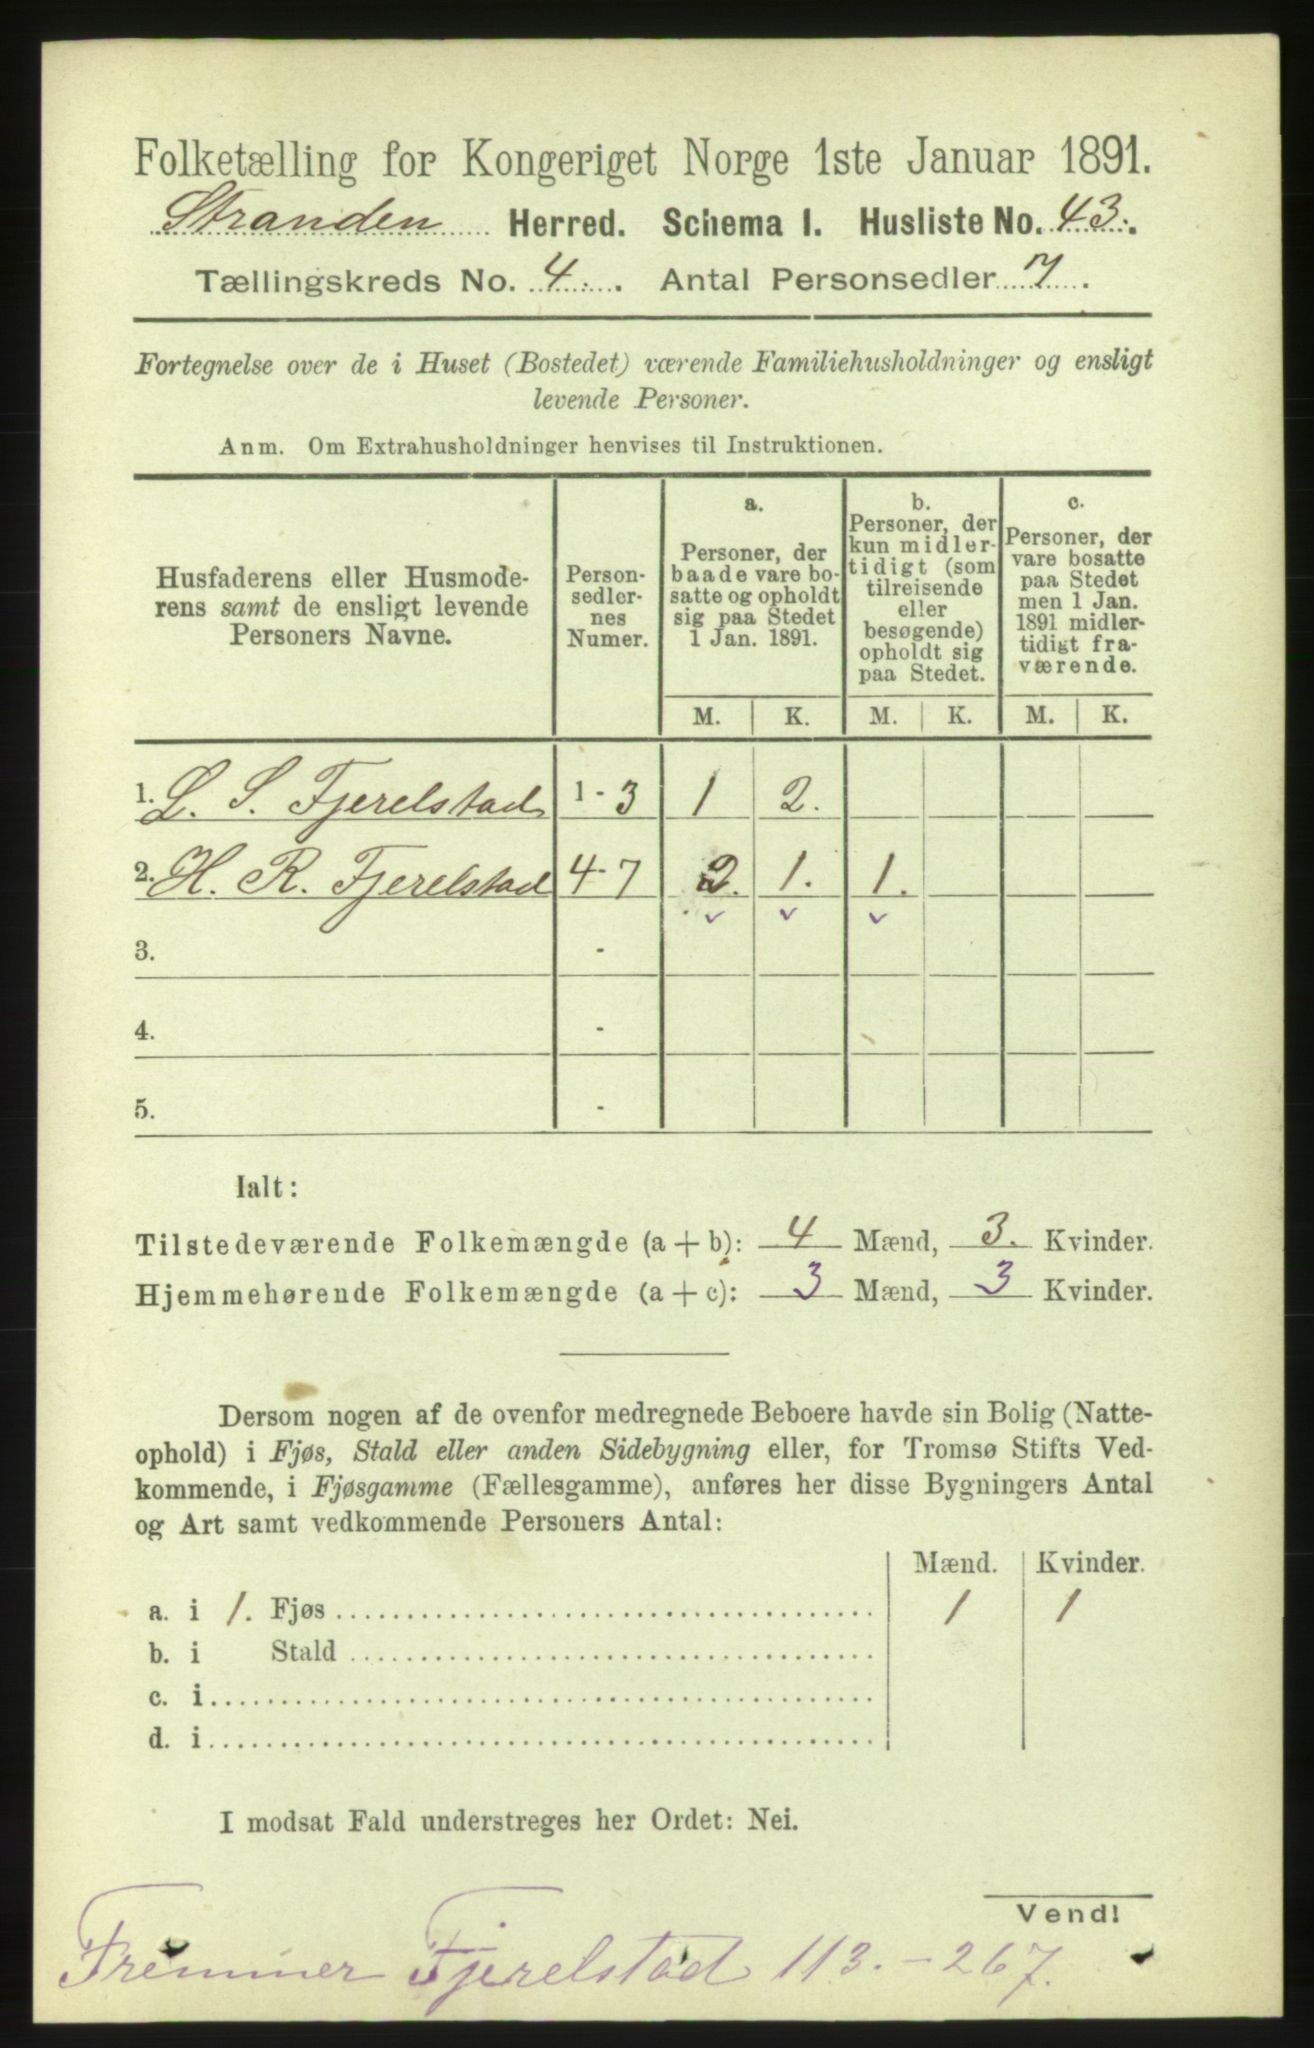 Folketælling for Kongeriget Norge 1ste Januar 1891.
Stranden Herred. Schema I. Husliste No. 43.
Tællingskreds No. 4. Antal Personsedler 7.
Fortegnelse over de i Huset (Bostedet) værende Familiehusholdninger og ensligt
levende Personer.
Anm. Om Extrahusholdninger henvises til Instruktionen.
Husfaderens eller Husmode-
rens samt de ensligt levende
Personers Navne.
Person-
sedler-
nes
Numer.
a.
Personer, der
baade vare bo-
satte og opholdt
sig paa Stedet
1 Jan. 1891.
b.
Personer, der
kun midler-
tidigt (som
tilreisende
eller
besøgende)
opholdt sig
paa Stedet.
c.
Personer, der
vare bosatte
paa Stedet
men 1 Jan.
1891 midler-
tidigt fra-
værende.
M. K. M. K. M. K.
1. L. S. Fjerelstad 1-3 1 2.
2. H. R. Fjerelstad 4-7 2. 1. 1.
3. -
4. -
5. -
Ialt:
Tilstedeværende Folkemængde (a + b): 4 Mænd, 3. Kvinder.
Hjemmehørende Folkemængde (a + c): 3 Mænd, 3 Kvinder.
Dersom nogen af de ovenfor medregnede Beboere havde sin Bolig (Natte-
ophold) i Fjøs, Stald eller anden Sidebygning eller, for Tromsø Stifts Ved-
kommende, i Fjøsgamme (Fællesgamme), anføres her disse Bygningers Antal
og Art samt vedkommende Personers Antal:
Mænd. Kvinder.
a. i 1. Fjøs 1 1
b. i Stald
c. i
d. i
I modsat Fald understreges her Ordet: Nei.
Vend!
Fremmer Fjerelstad 113. - 267.